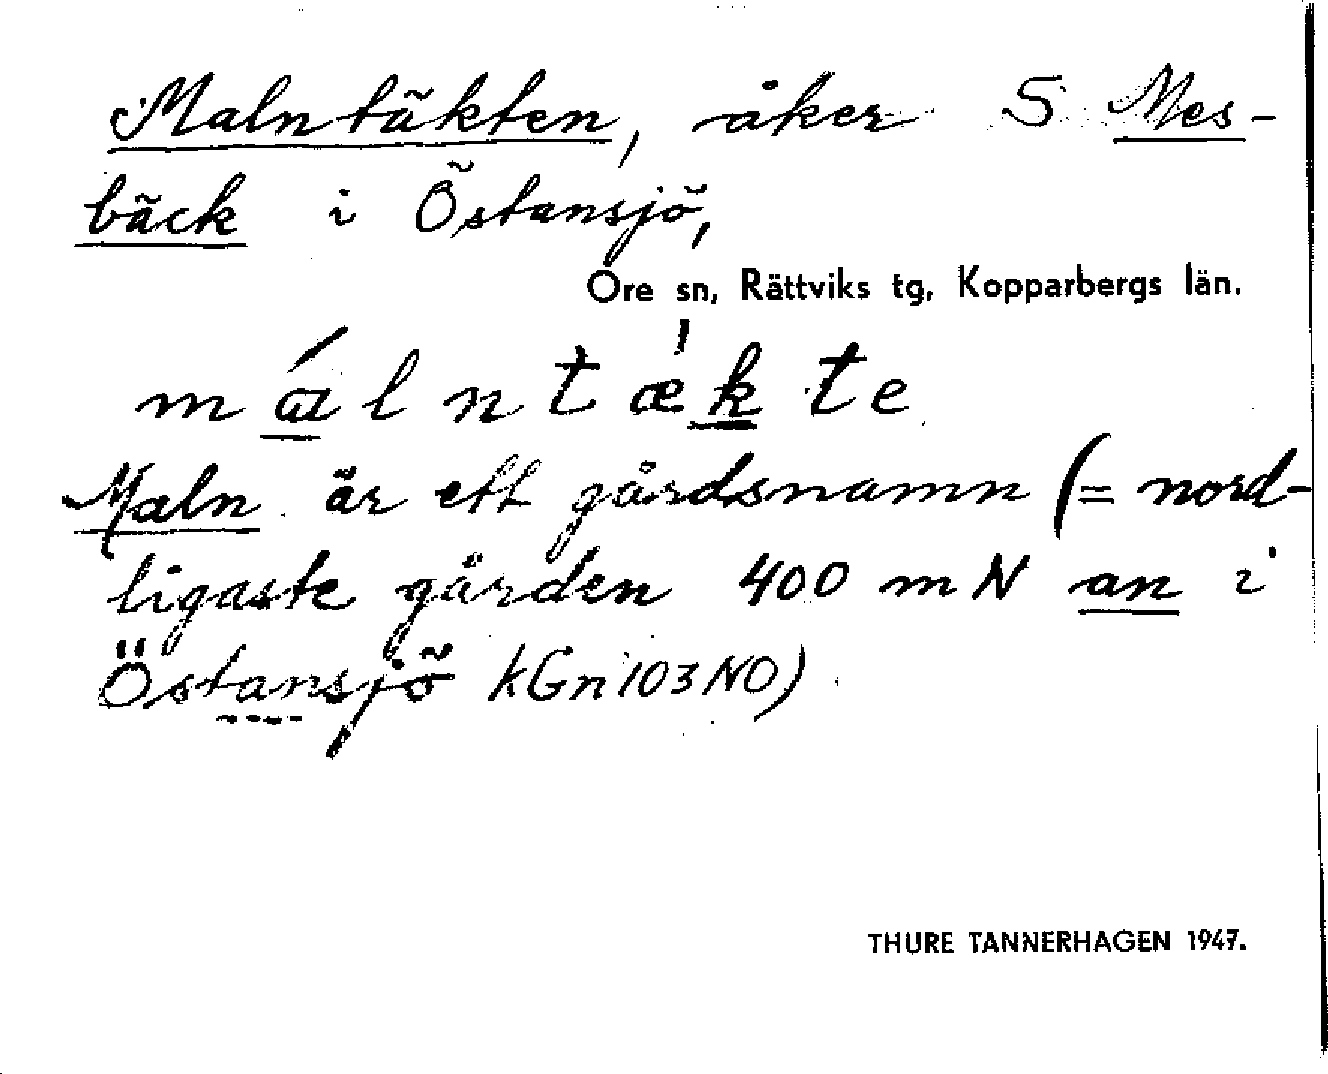 Malntäkten, åker S Mes-
bäck i Östansjö,
Ore sn, Rättviks tg, Kopparbergs län.
málntæ̀kte
Maln är ett gårdsnamn (= nord-
ligaste gården 400 m N an i
Östansjö kGn 103 NO)
THURE TANNERHAGEN 1947.